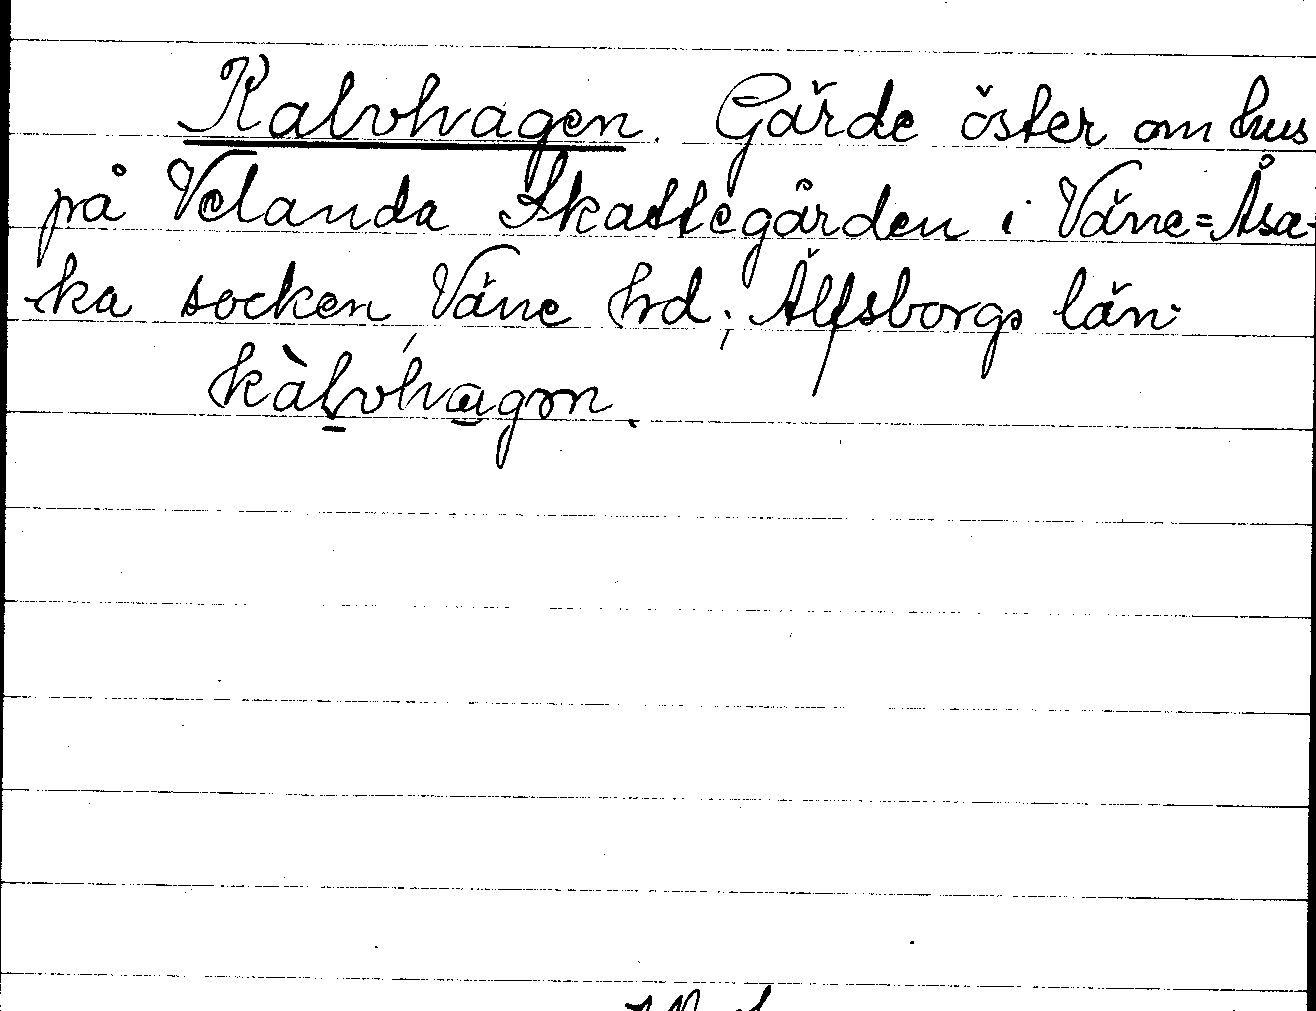 Kalvhagen. Gärde öster om hus
på Velanda Skattegården i Väne=Åsa-
ka socken, Väne hd; Älfsborgs län.
kàlvhagon.